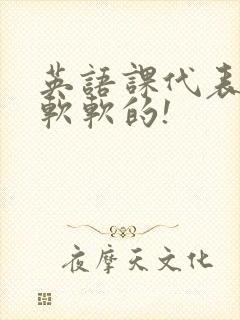 英語課代表
軟軟的!
夜摩天文化